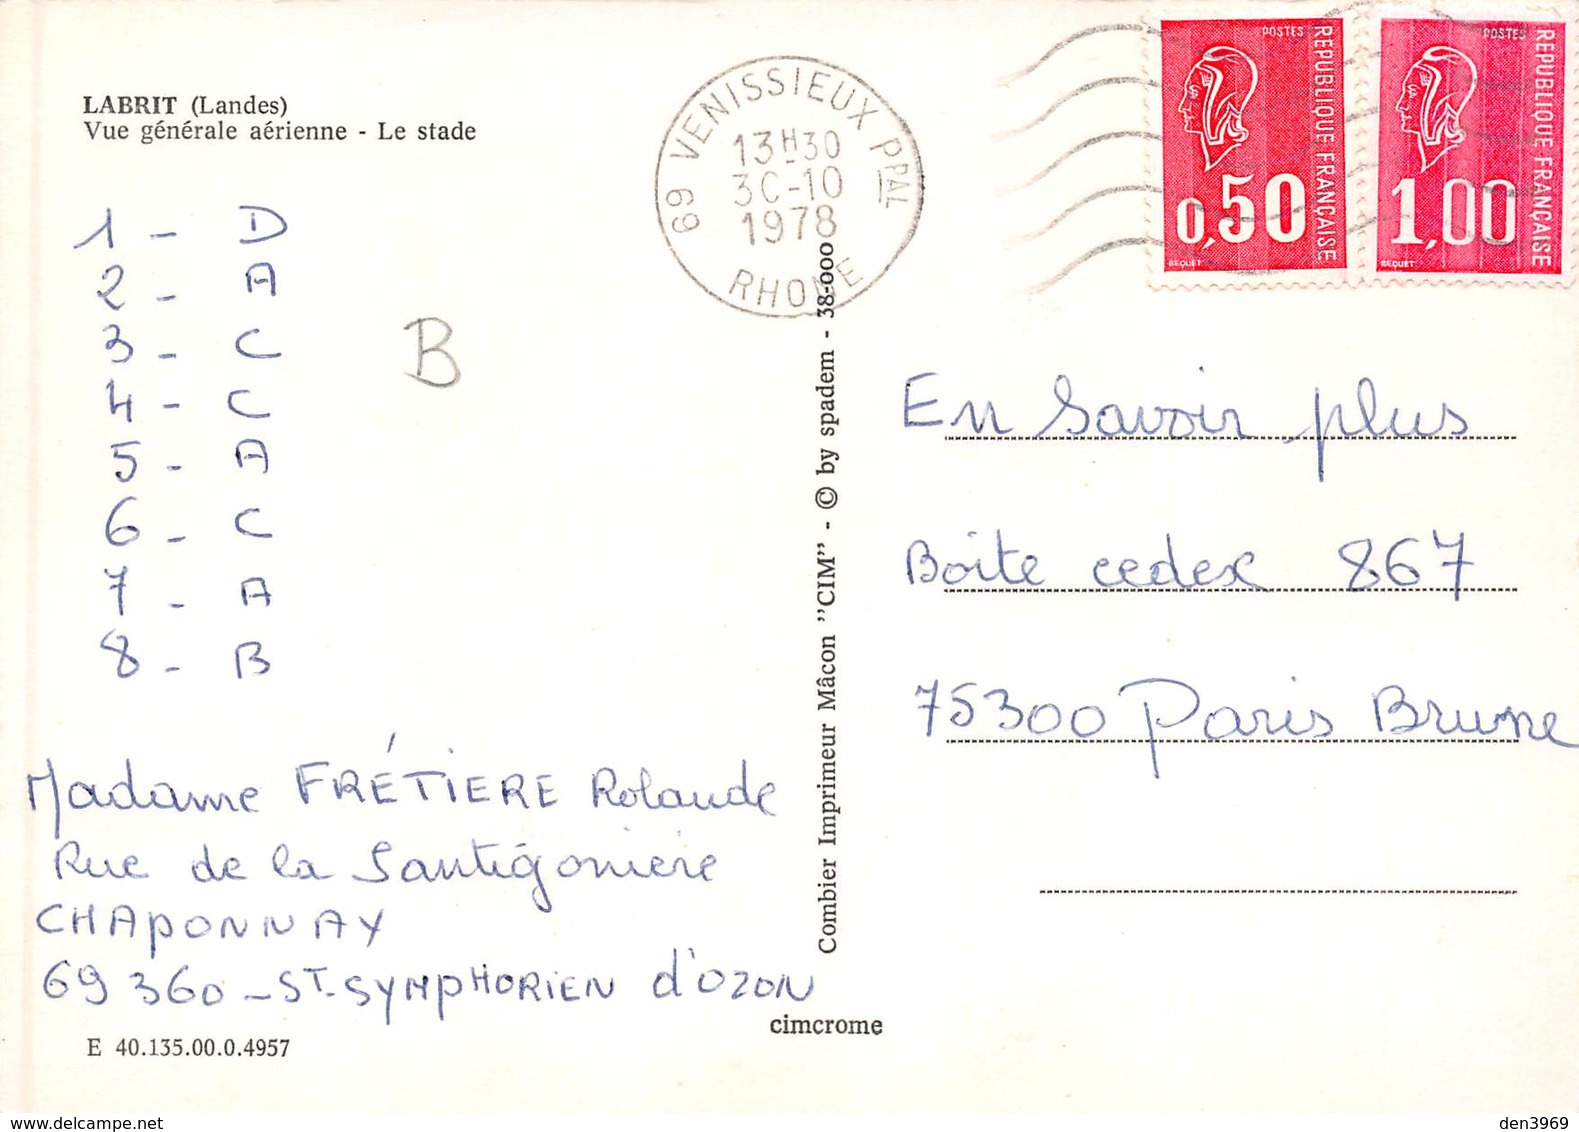 LABRIT (Landes)
Vue générale aérienne - Le stade
69 VENISSIEUX PPAL
13H30
30-10
1978
RHONE
POSTES
REPUBLIQUE FRANÇAISE
0,50
BEQUET
POSTES
REPUBLIQUE FRANÇAISE
1,00
BEQUET
1 - D
2 - A
3 - C
4 - C
5 - A
6 - C
7 - A
8 - B
B
Madame FRÉTIERE Rolande
Rue de la Santigoniere
CHAPONNAY
69360 - ST-SYMPHORIEN d'OZON
E 40.135.00.0.4957
Combier Imprimeur Mâcon "CIM" - © by spadem - 38-000
cimcrome
En Savoir plus
Boite cedex 867
75300 Paris Brune
www.delcampe.net
den3969